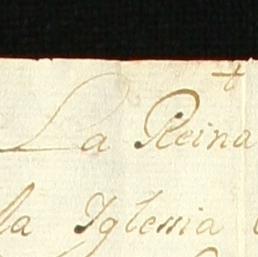 La Reina
la Iglesia